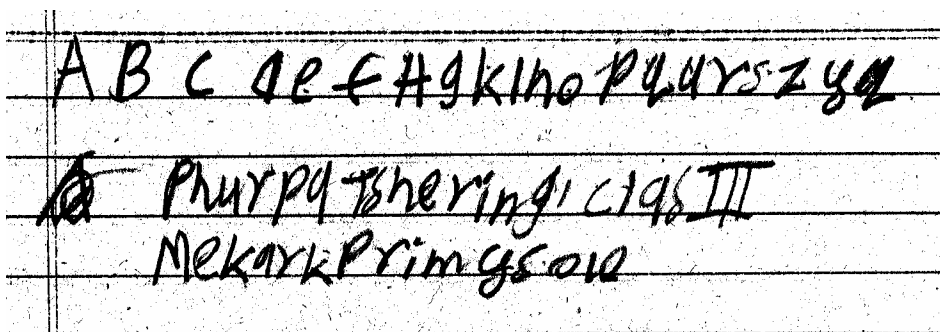 A B C d e f H g k l n o p q u r s z y q
Phurpa Tshering, clas III
Mekark Prim ys ole